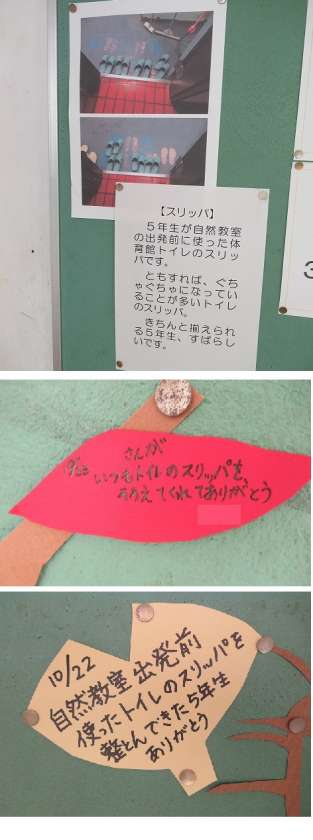 【スリッパ】
５年生が自然教室
の出発前に使った体
育館トイレのスリッ
パです。
ともすれば、ぐち
ゃぐちゃになってい
ることが多いトイレ
のスリッパ。
きちんと揃えられ
る５年生、すばらし
いです。
3
さんが
いつもトイレのスリッパを、
そろえてくれてありがとう
10/22
自然教室出発前
使ったトイレのスリッパを
整とんできた5年生
ありがとう